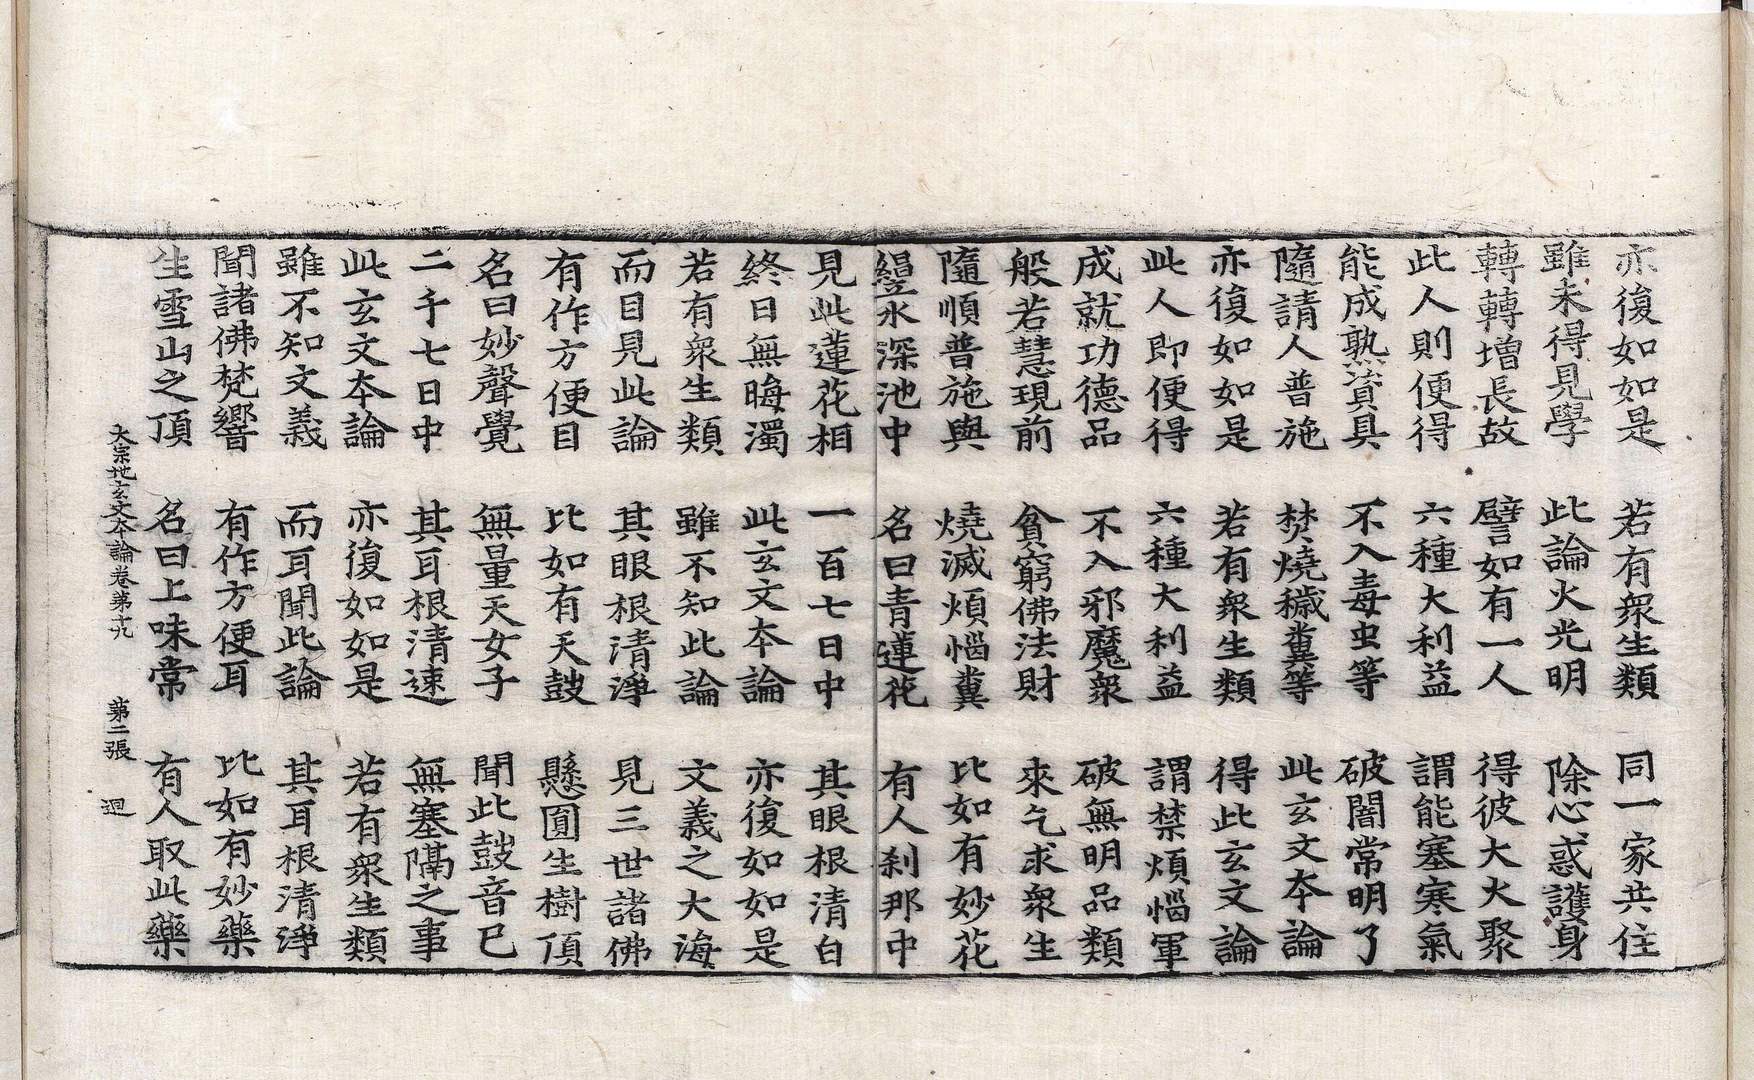 亦復如如是　若有衆生類　同一家共住
雖未得見學　此論火光明　除心惑護身
轉轉增長故　譬如有一人　得彼大火聚
此人則便得　六種大利益　謂能塞寒氣
能成熟資具　不入毒虫等　破闇常明了
隨請人普施　焚燒穢糞等　此玄文本論
亦復如如是　若有衆生類　得此玄文論
此人即便得　六種大利益　謂禁煩惱軍
成就功德品　不入邪魔衆　破無明品類
般若慧現前　貧窮佛法財　來乞求衆生
隨順普施與　燒滅煩惱糞　比如有妙花
縵水深池中　名曰青蓮花　有人刹那中
見此蓮花相　一百七日中　其眼根清白
終日無晦濁　此玄文本論　亦復如如是
若有衆生類　雖不知此論　文義之大海
而目見此論　其眼根清淨　見三世諸佛
有作方便目　比如有天鼓　懸圓生樹頂
名曰妙聲覺　無量天女子　聞此鼓音已
二千七日中　其耳根清速　無塞隔之事
此玄文本論　亦復如如是　若有衆生類
雖不知文義　而耳聞此論　其耳根清淨
聞諸佛梵響　有作方便耳　比如有妙藥
生雪山之頂　名曰上味常　有人取此藥
大宗地玄文本論卷第十九　第二張　迴